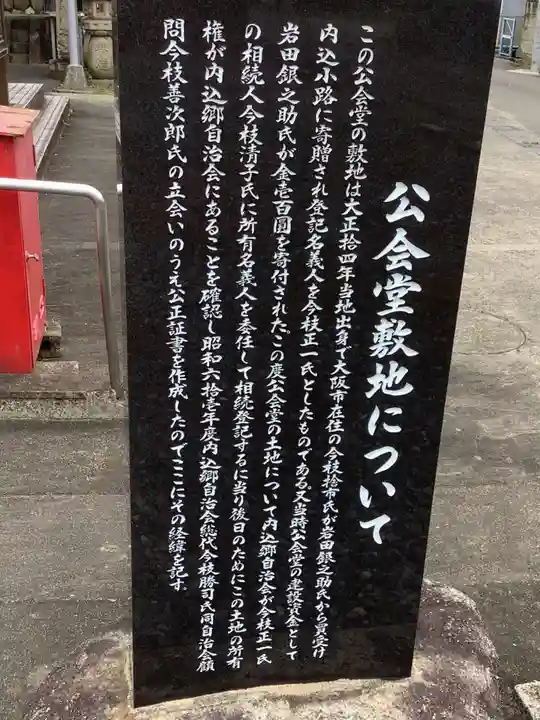 公会堂敷地について
この公会堂の敷地は大正拾四年当地出身で大阪市在住の今枝捨市氏が岩田銀之助氏から買受け
内込小路に寄贈され登記名義人を今枝正一氏としたものである。又当時公会堂の建設資金として
岩田銀之助氏が金壱百圓を寄付された。この度公会堂の土地について内込郷自治会が今枝正一氏
の相続人今枝清子氏に所有名義人を委任して相続登記するに当り後日のためにこの土地の所有
権が内込郷自治会にあることを確認し昭和六拾壱年度内込郷自治会総代今枝勝司氏同自治会顧
問今枝善次郎氏の立会いのうえ公正証書を作成したのでここにその経緯を記す。